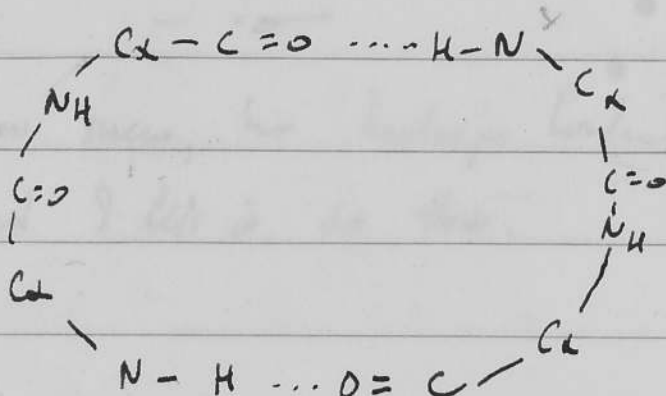 Cα – C = O ····· H – N
NH Cα
C=O C=O
NH
Cα Cα
N – H ···· O = C